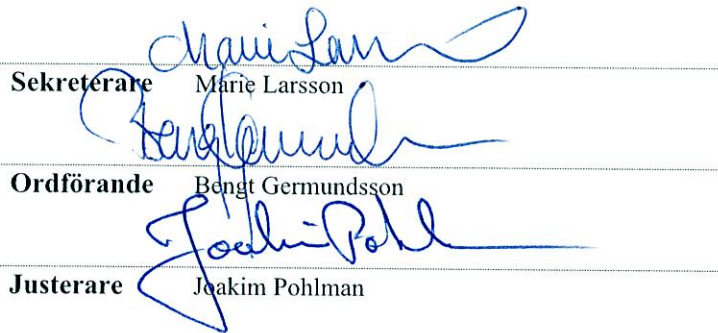 Marie Larsson
Sekreterare Marie Larsson
Bengt Germundsson
Ordförande Bengt Germundsson
Joakim Pohlman
Justerare Joakim Pohlman